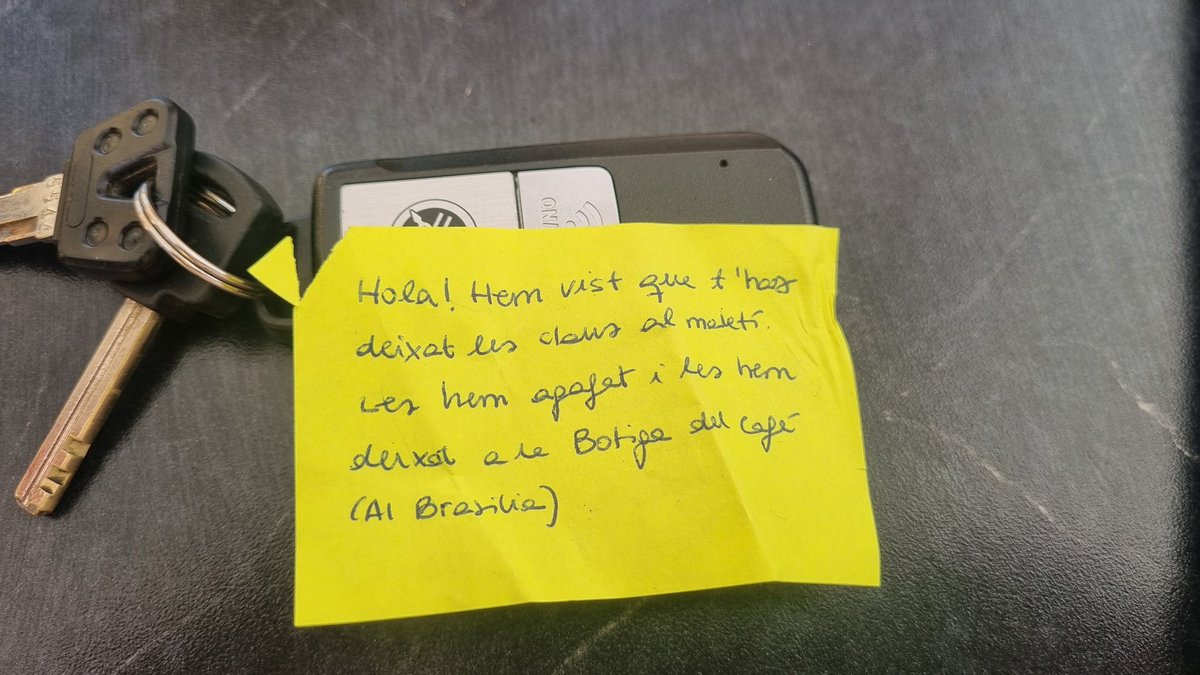 Hola! Hem vist que t'has
deixat les claus al maletí.
Les hem agafat i les hem
deixat a la Botiga del Cafè
(Al Brasilia)